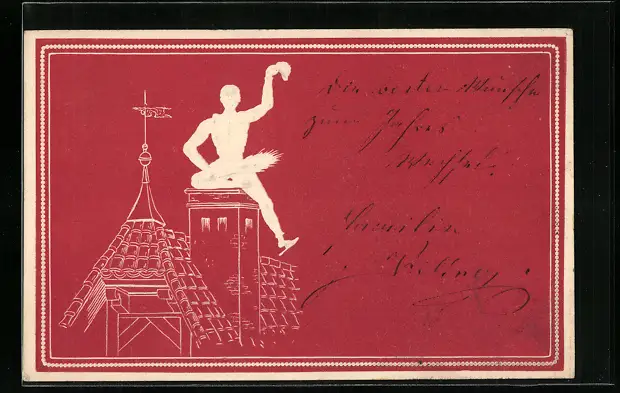 Die besten Wünsche
zum Jahres
Wechsel.
Familie